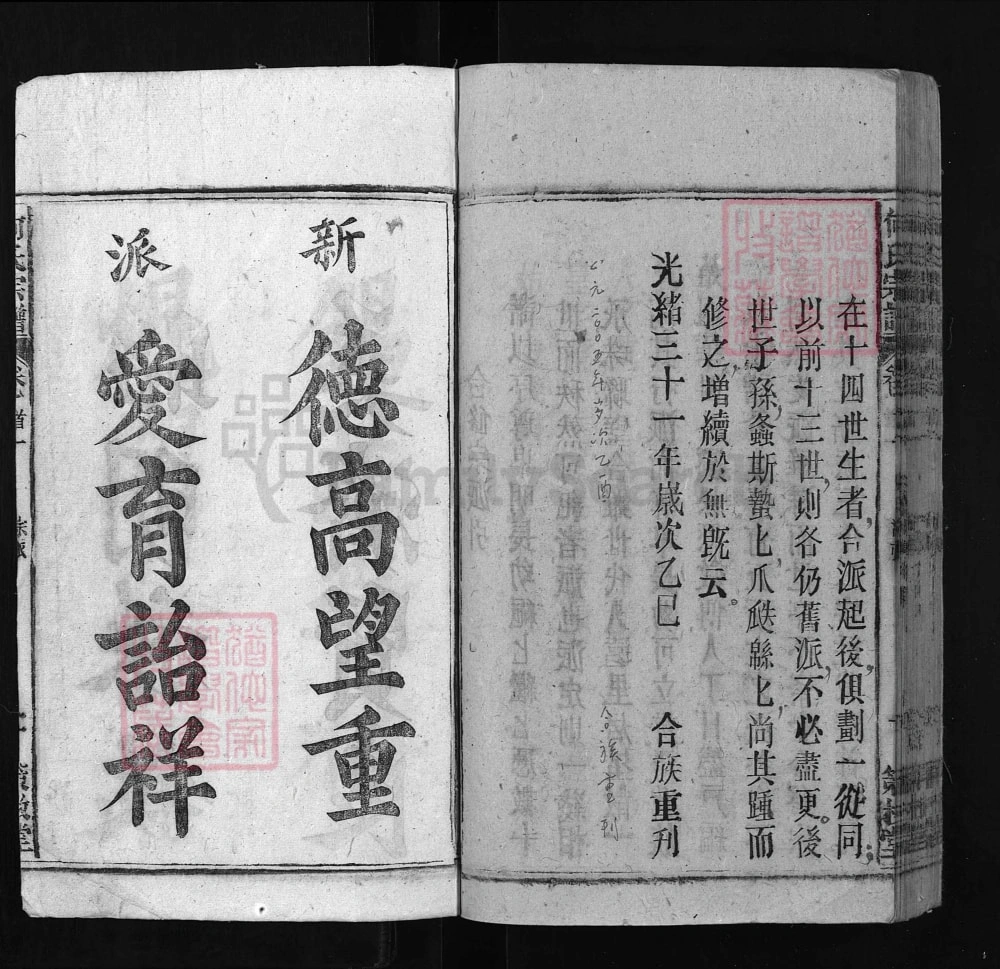 在十四世生者,合派起後,俱劃一從同;
以前十三世,則各仍舊派,不必盡更。後
世子孫,螽斯蟄匕,瓜瓞緜匕,尚其踵而
修之,增續於無旣云。
光緒三十一年歲次乙巳 合族重刋
公元二〇〇五年歲次乙酉 合族重刊
新
德高望重
派
愛育詒祥